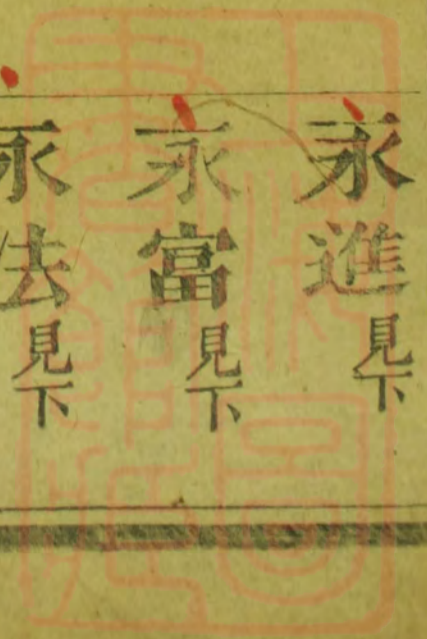 永進見下
永富見下
永法見下